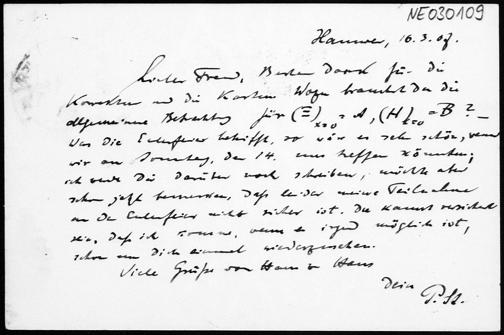 NE030109
Hannover, 16.3.07.
Lieber Freund, Besten Dank für die
Korrektur und die Karten. Wozu brauchst Du die
allgemeine Betrachtung für (Ξ)x=0 = A, (H)z=0 = B ? —
Was die Eulerfeier betrifft, so wär es sehr schön, wenn
wir am Sonntag, den 14. uns treffen könnten;
ich werde Dir darüber noch schreiben, möchte aber
schon jetzt bemerken, daß leider meine Teilnahme
an der Eulerfeier nicht sicher ist. Du kannst versichert
sein, daß ich komme, wenn es irgend möglich ist,
schon um Dich einmal wiederzusehen.
Viele Grüße von Haus zu Haus
Dein
P. St.